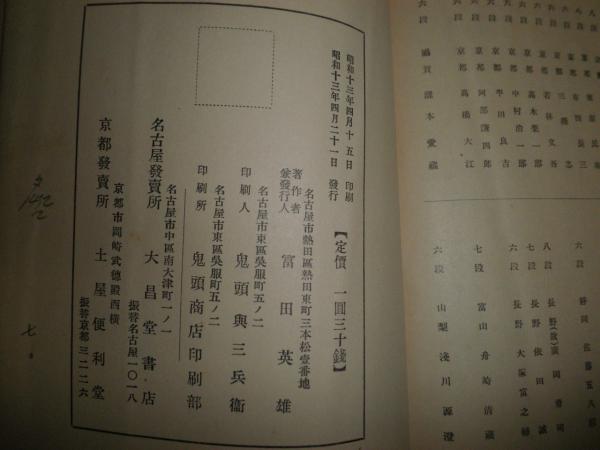 六段 靜岡 佐藤
八段
長野 依田 誠
六段 長野 大塚富之
七段 富山 舟崎清藏
六段 山梨 淺川源澄
京都 若林
京都 高木榮一郎
京都 中村治一郎
京都 平田良吉
京都
六段 京都 高橋大江
六段 滋賀 課本愛藏
昭和十三年四月十五日 印刷
昭和十三年四月二十一日 發行
【定價 一圓三十錢】
名古屋市熱田區熱田東町三本松壹番地
著作者兼發行人 富田英雄
名古屋市東區吳服町五ノ二
印刷人 鬼頭與三兵衞
名古屋市東區吳服町五ノ二
印刷所 鬼頭商店印刷部
名古屋市中區南大津町一ノ一
名古屋發賣所 大昌堂書店
振替名古屋一〇一八
京都市岡崎武德殿西橫
京都發賣所 土屋便利堂
振替京都三二二六